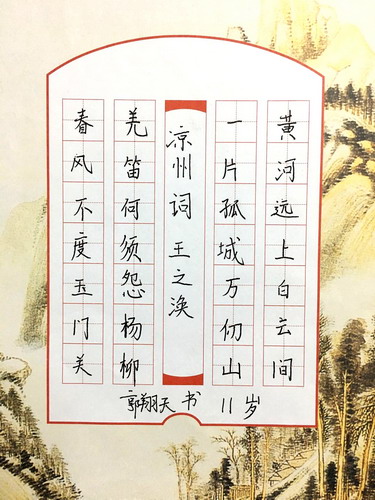 黄河远上白云间
一片孤城万仞山
凉州词 王之涣
羌笛何须怨杨柳
春风不度玉门关
郭翔天 书 11岁